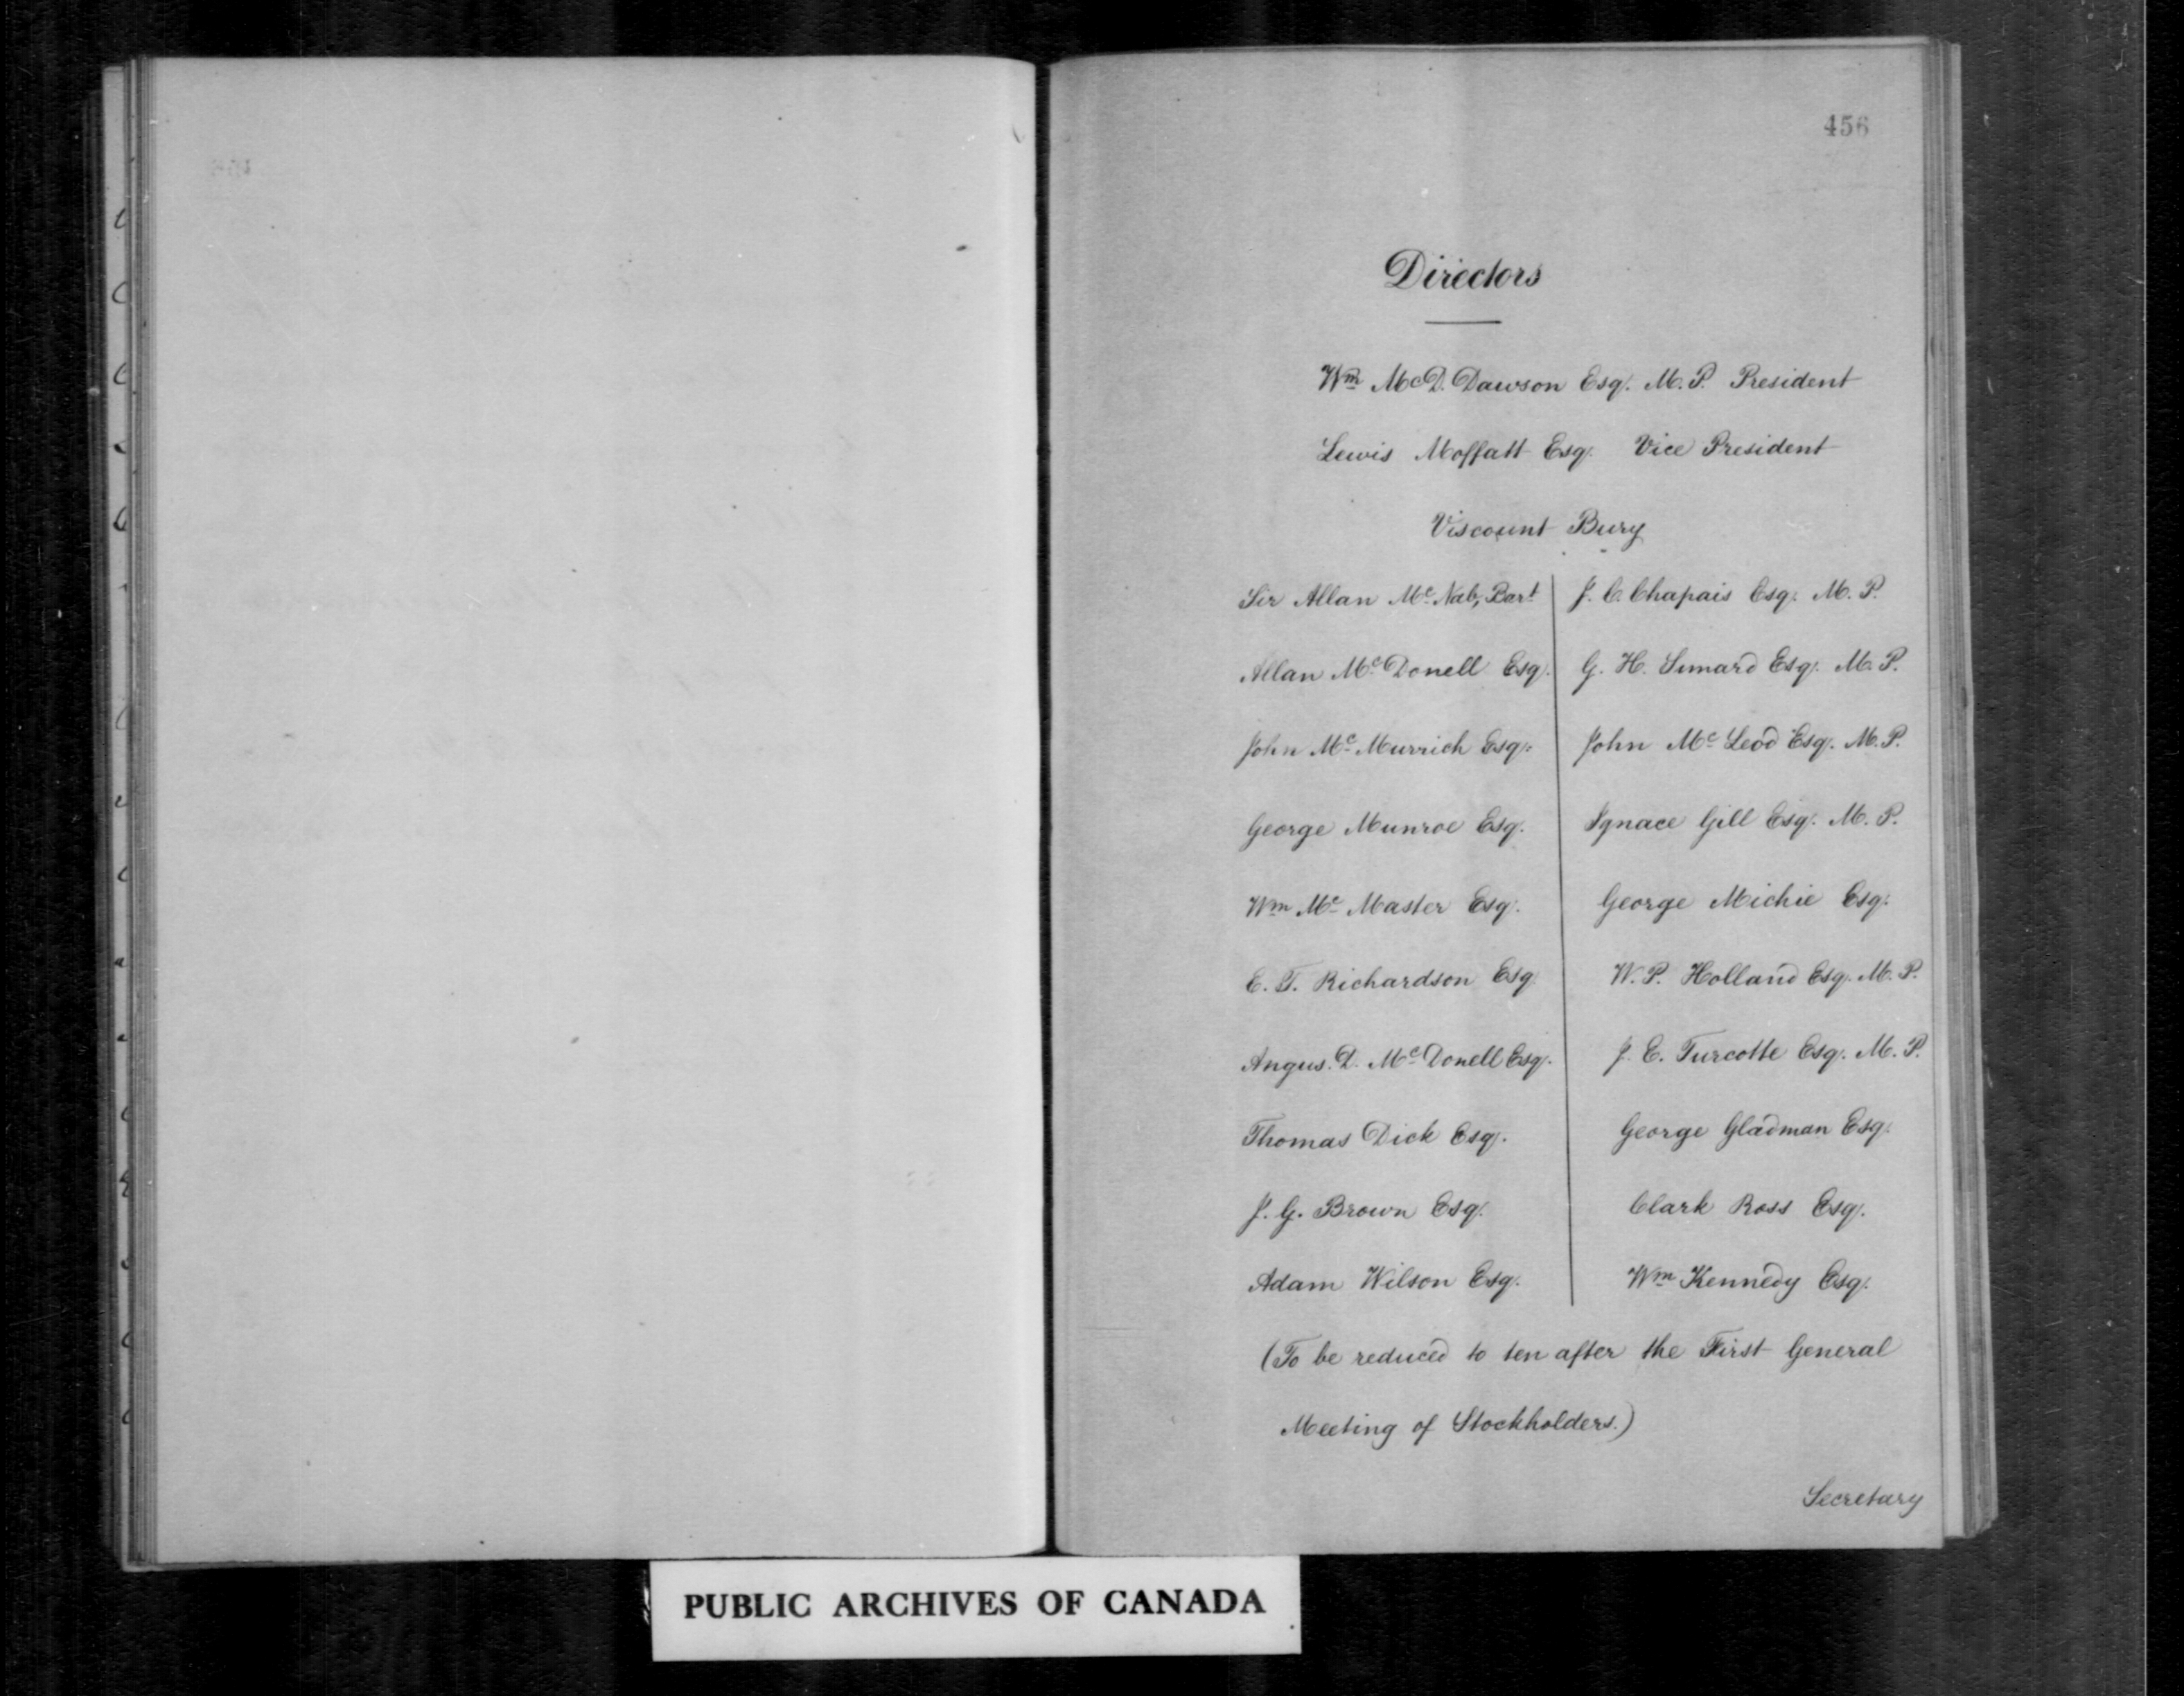 456
Directors
Wm McD. Dawson Esq. M. P. President
Lewis Moffatt Esq. Vice President
Viscount Bury
Sir Allan Mc Nab, Bart
Allan Mc Donell Esq.
John Mc Murrich Esq.
George Munroe Esq.
Wm Mc Master Esq.
E. T. Richardson Esq
Angus. D. Mc Donell Esq.
Thomas Dick Esq.
J. G. Brown Esq.
Adam Wilson Esq.
J. C. Chapais Esq. M. P.
G. H. Simard Esq. M. P.
John Mc Leod Esq. M. P.
Ignace Gill Esq. M. P.
George Michie Esq.
W. P. Holland Esq. M. P.
J. E. Turcotte Esq. M. P.
George Gladman Esq.
Clark Ross Esq.
Wm Kennedy Esq.
(To be reduced to ten after the First General
Meeting of Stockholders.)
Secretary
PUBLIC ARCHIVES OF CANADA